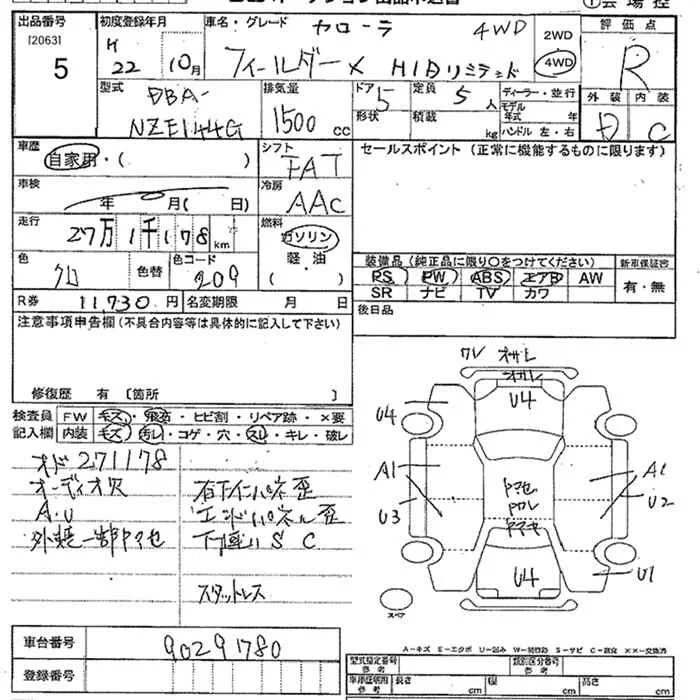 出品番号 初度登録年月 車名・グレード カローラ 4WD 2WD 評価点
[2063] H フィールダー X HIDリミテッド 4WD R
5 22 10月
型式 排気量 ドア 定員 ディーラー・並行 外装 内装
DBA- 5 5人 モデル年式 年 C
NZE144G 1500cc 形状 積載 kg ハンドル 左・右
車歴 シフト セールスポイント(正常に機能するものに限ります)
自家用・( ) FAT
車検 冷房
年 月( 日) AAC
走行 燃料
27万1千178km ガソリン
色 色替 色コード 軽・油 装備品(純正品に限り○をつけてください) 新車保証書
クロ 209 ( ) PS PW ABS エアB AW 有・無
R券 11,730円 名変期限 月 日 SR ナビ TV カワ
注意事項申告欄(不具合内容等は具体的に記入して下さい) 後日品
修復歴 有 〔箇所 〕
検査員 FW キズ・飛石・ヒビ割・リペア跡・×要
記入欄 内装 キズ・汚レ・コゲ・穴・スレ・キレ・破レ
オド 271178
オーディオ欠 右下インパネ歪
A.U エンドパネル歪
S C
スタットレス
U4
U4
A1 A1
U3 U2
U4 U1
スペア
A-キズ E-エクボ U-凹み S-サビ C-腐食 ××-交換済
車台番号 90291780
登録番号
型式指定番号 参考 類別区分番号 参考
長さ cm 幅 cm 高さ cm